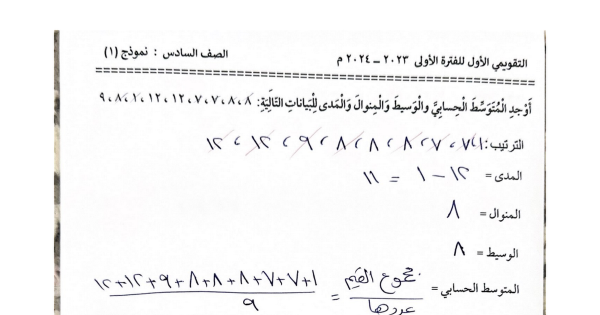 التقويمي الأول للفترة الأولى ٢٠٢٣ – ٢٠٢٤ م الصف السادس : نموذج (١)
أَوْجِدِ المُتَوَسِّطَ الْحِسابِيَّ والْوَسيطَ وَالْمِنوالَ وَالْمَدى لِلْبَياناتِ التّالِيَةِ: ٨ ، ٨ ، ٧ ، ٧ ، ١٢ ، ١٢ ، ١ ، ٨ ، ٩
الترتيب: ١ ، ٧ ، ٧ ، ٨ ، ٨ ، ٨ ، ٩ ، ١٢ ، ١٢
المدى = ١٢ – ١ = ١١
المنوال = ٨
الوسيط = ٨
المتوسط الحسابي = مجموع القيم / عددها = ١+٧+٧+٨+٨+٨+٩+١٢+١٢ / ٩